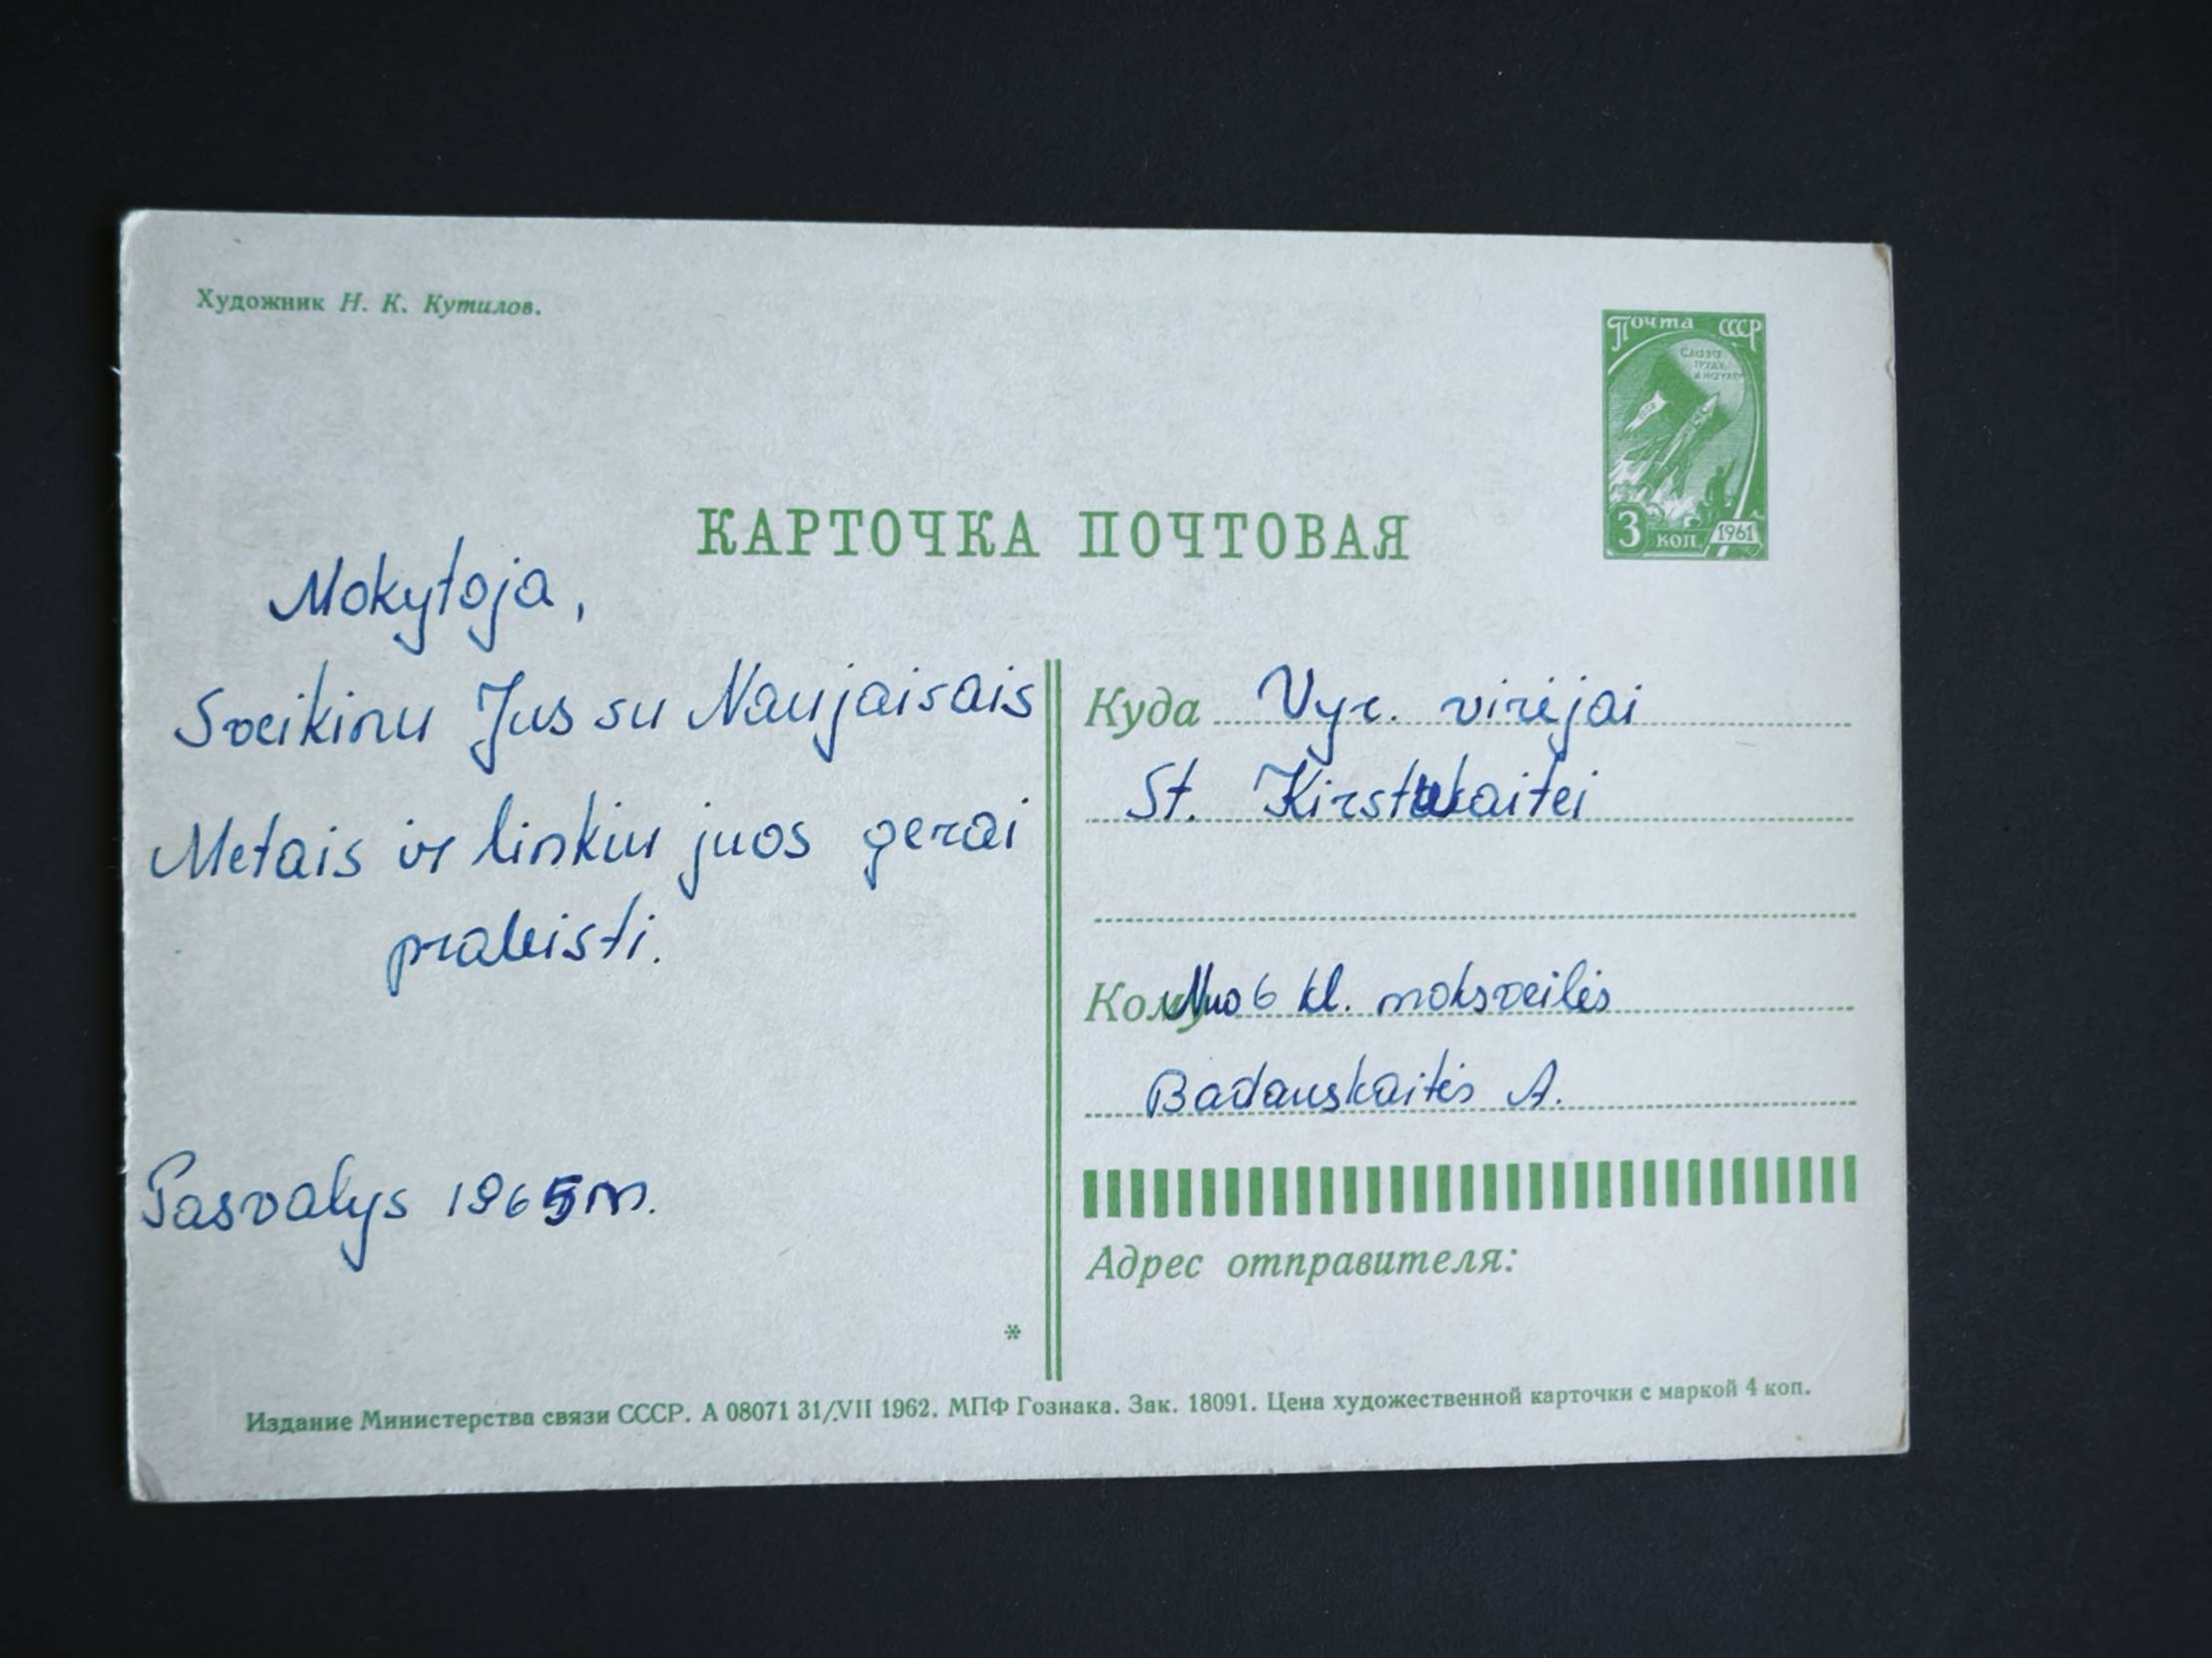 Художник Н. К. Кутилов.
Почта СССР
СЛАВА
ТРУДУ
И НАУКЕ
3 коп. 1961
КАРТОЧКА ПОЧТОВАЯ
Mokytoja,
Sveikinu Jus su Naujaisais
Metais ir linkiu juos gerai
praleisti.
Pasvalys 1965 m.
Куда Vyr. virėjai
St. Kirstukaitei
Кому Nuo 6 kl. moksveilės
Badauskaitės A.
Адрес отправителя:
*
Издание Министерства связи СССР. А 08071 31/VII 1962. МПФ Гознака. Зак. 18091. Цена художественной карточки с маркой 4 коп.